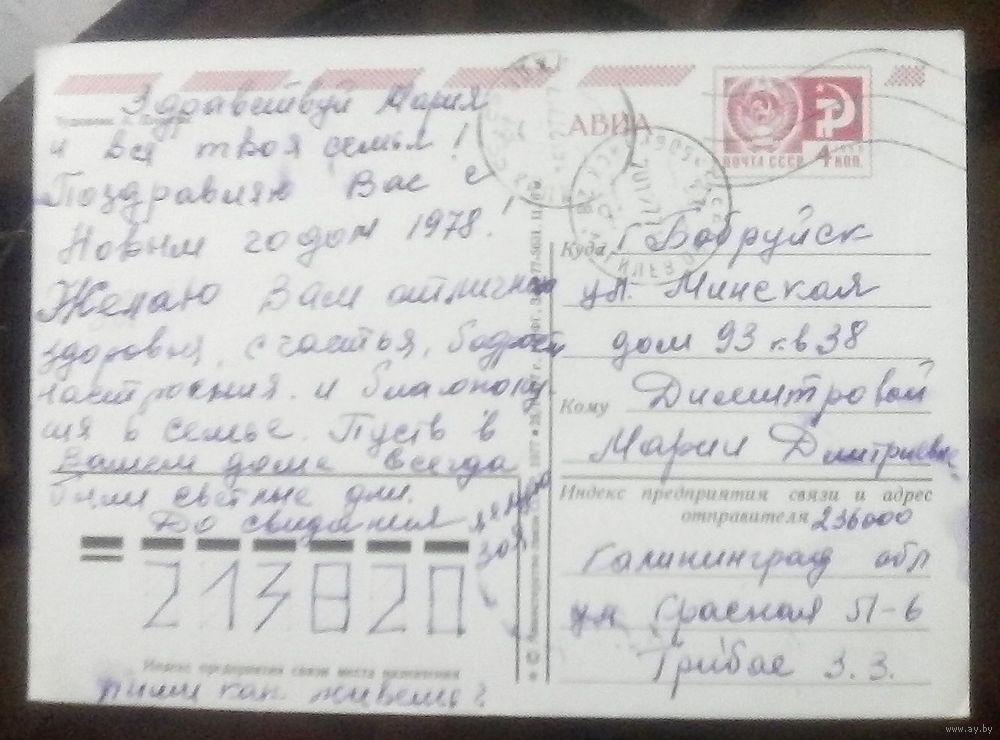 Здравствуй Мария
и вся твоя семья!
Поздравляю Вас с
Новым годом 1978!
Желаю Вам отличного
здоровья, счастья, бодрости
настроения и благополу-
чия в семье. Пусть в
Вашем доме всегда
были светлые дни.
До свидания
пиши как живешь?
АВИА
ПОЧТА СССР 4 КОП.
Куда г. Бобруйск
ул. Минская
дом 93 кв 38
Кому Димитровой
Марии Дмитриевне
Индекс предприятия связи и адрес
отправителя 236000
Калининград обл
ул Красная 11-6
Грибое З.З.
213820
Индекс предприятия связи места назначения
www.ay.by